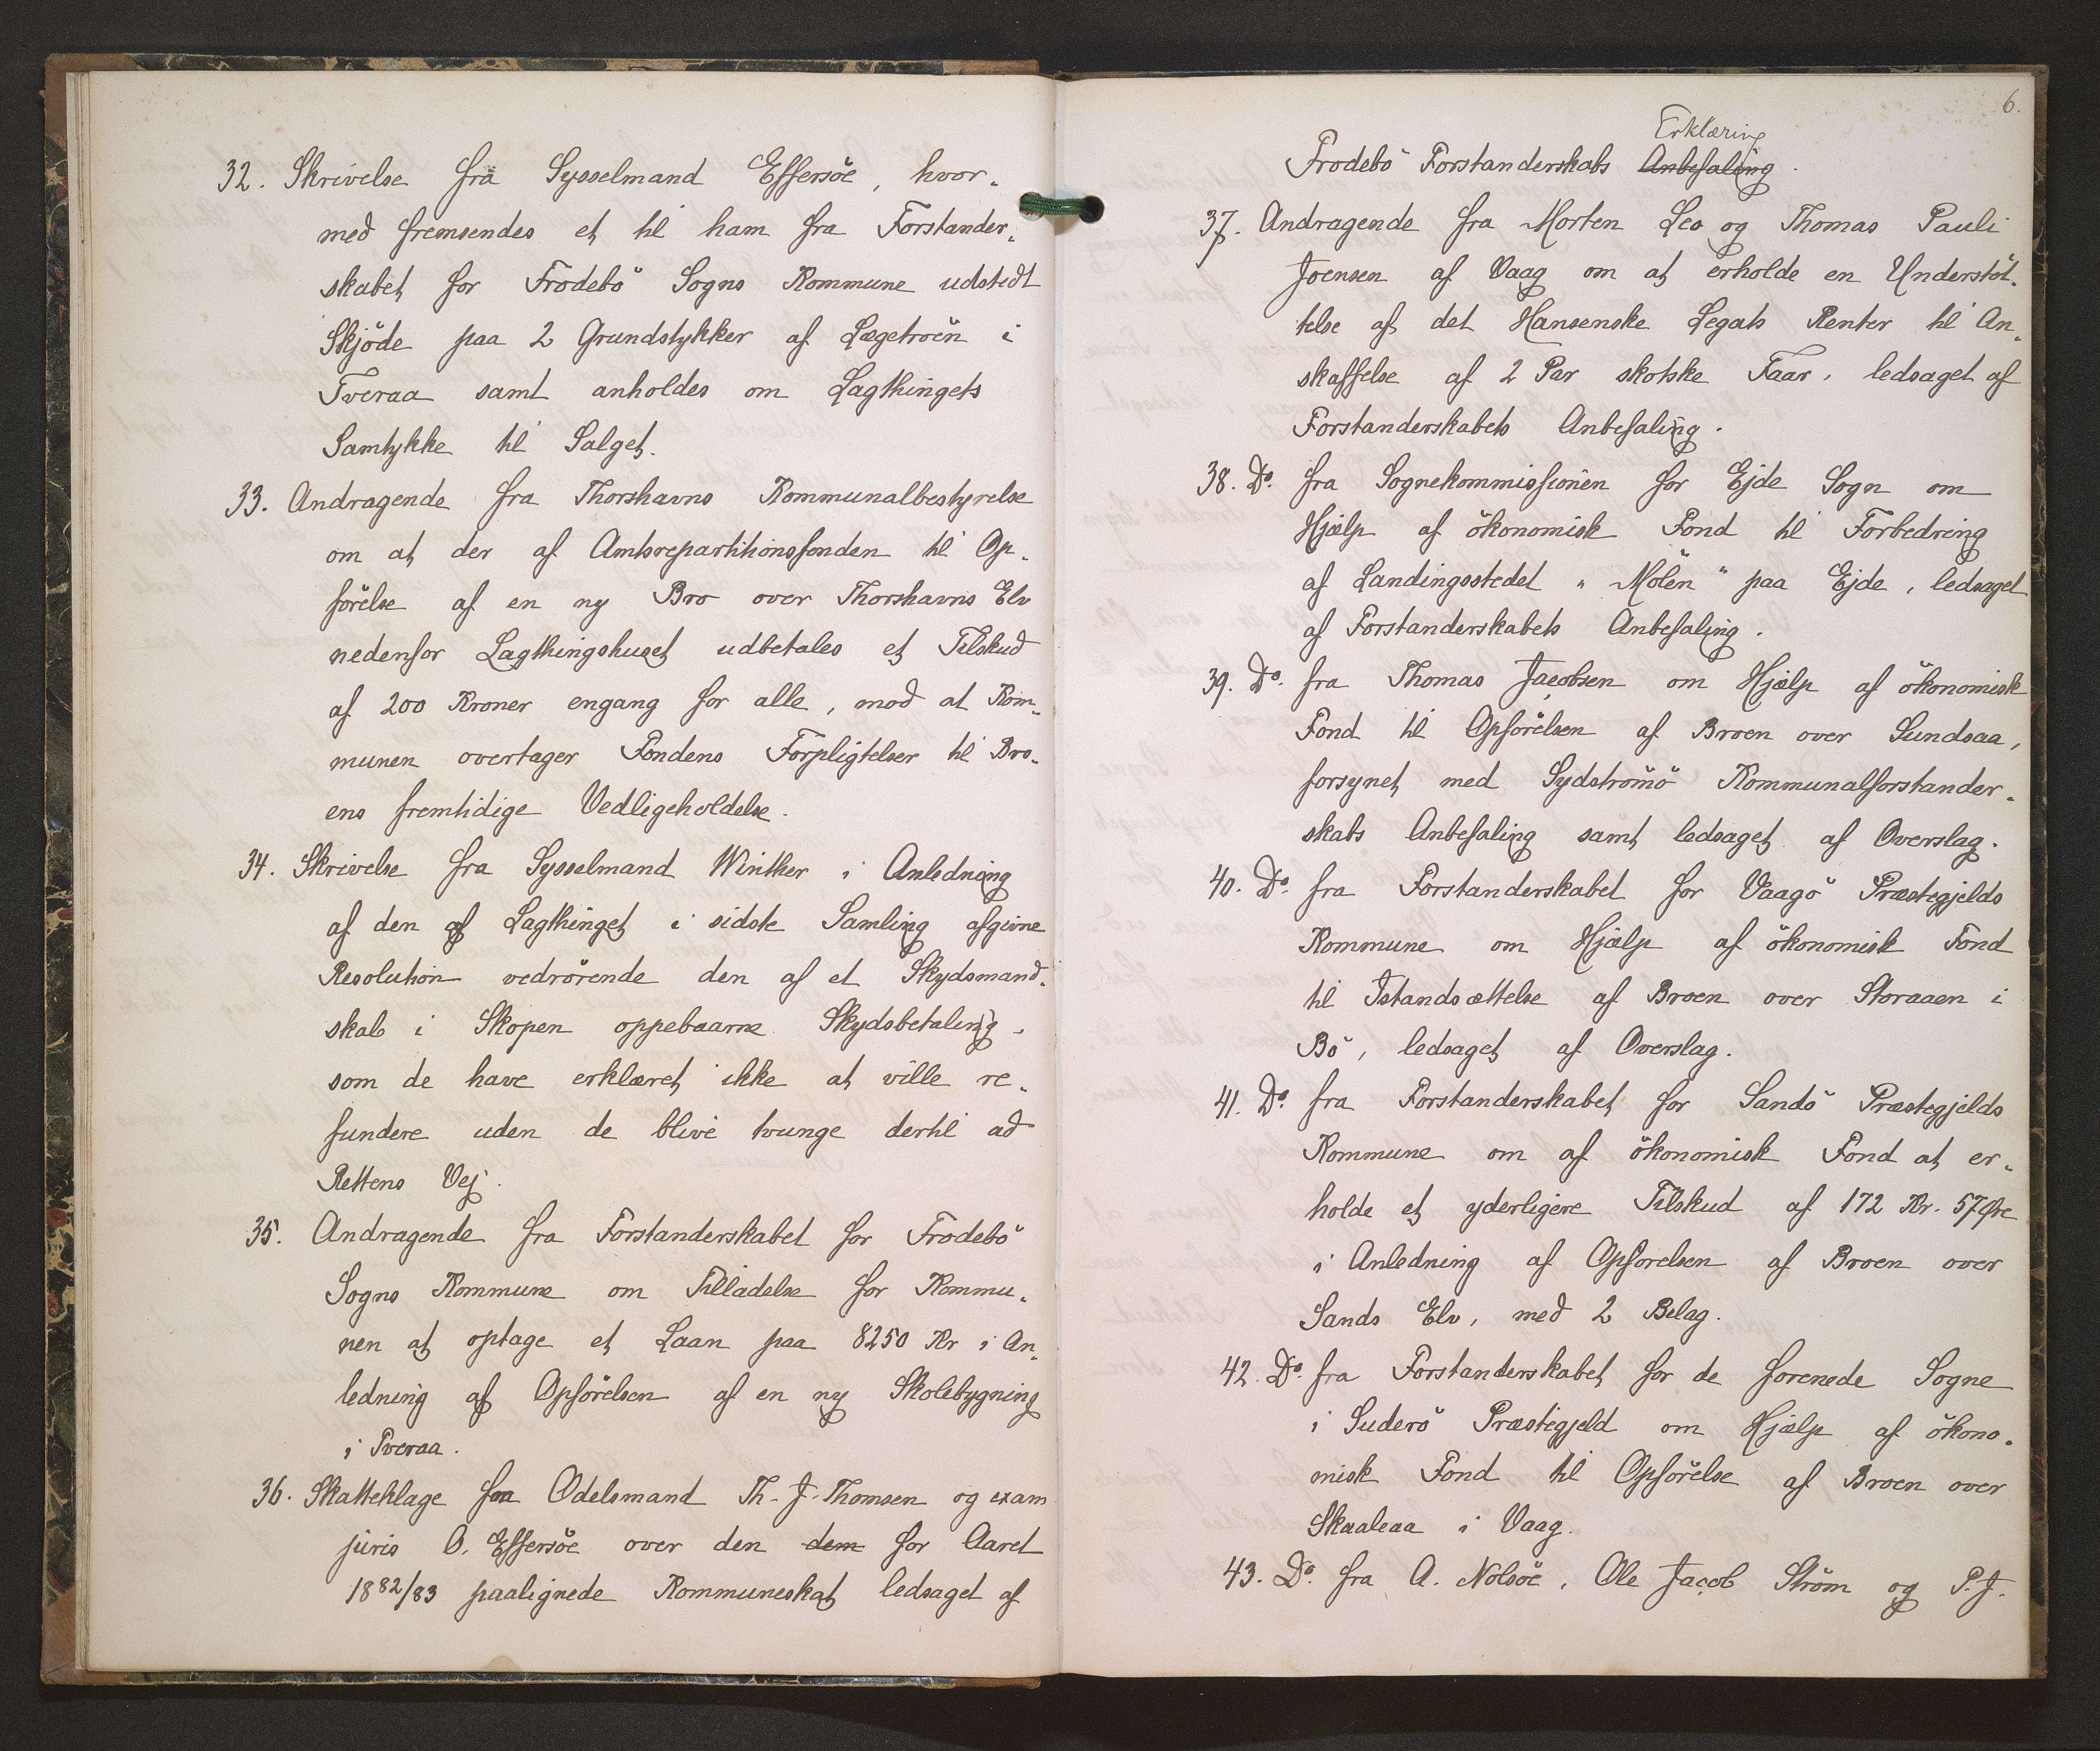 32. Skrivelse fra Sysselmand Effersöe, hvor„
med fremsendes et til ham fra Forstander„
skabet for Frodebö Sogns Kommune udstedt
Skjöde paa 2 Grundstykker af Lægetroën i
Tveraa samt anholdes om Lagthingets
Samtykke til Salget.
33. Andragende fra Thorshavns Kommunalbestyrelse
om at der af Amtsrepartitionsfonden til Op„
förelse af en ny Bro over Thorshavns Elv
nedenfor Lagthingshuset udbetales et Tilskud
af 200 Kroner engang for alle, mod at Kom„
munen overtager Fondens Forpligtelser til Bro„
ens fremtidige Vedligeholdelse.
34. Skrivelse fra Sysselmand Winther i Anledning
af den af Lagthinget i sidste Samling afgivne
Resolution vedrörende den af et Skydsmand„
skab i Skopen oppebaarne Skydsbetaling,
som de have erklæret ikke at ville re„
fundere uden de blive tvunge dertil ad
Rettens Vej.
35. Andragende fra Forstanderskabet for Frodebö
Sogns Kommune om Tilladelse for Kommu„
nen at optage et Laan paa 8250 Kr i An„
ledning af Opförelsen af en ny Skolebygning
i Tveraa.
36. Skatteklage fra Odelsmand Th. J. Thomsen og exam
juris O. Effersöe over den dem for Aaret
1882/83 paalignede Kommuneskat ledsaget af
6.
Erklæring
Frodebö Forstanderskabs Anbefaling.
37. Andragende fra Morten Leo og Thomas Pauli
Joensen af Vaag om at erholde en Understöt„
telse af det Hansenske Legats Renter til An„
skaffelse af 2 Par skotske Faar, ledsaget af
Forstanderskabets Anbefaling.
38. Do. fra Sognekommissionen for Ejde Sogn om
Hjælp af ökonomisk Fond til Forbedring
af Landingsstedet „Mölen“ paa Ejde, ledsaget
af Forstanderskabets Anbefaling.
39. Do. fra Thomas Jacobsen om Hjælp af ökonomisk
Fond til Opförelsen af Broen over Sundsaa,
forsynet med Sydströmö Kommunalforstander„
skabs Anbefaling samt ledsaget af Overslag.
40. Do. fra Forstanderskabet for Vaagö Præstegjelds
Kommune om Hjælp af ökonomisk Fond
til Istandsættelse af Broen over Storaaen i
Bö, ledsaget af Overslag.
41. Do. fra Forstanderskabet for Sandö Præstegjelds
Kommune om af ökonomisk Fond at er„
holde et yderligere Tilskud af 172 Kr. 57 Øre
i Anledning af Opförelsen af Broen over
Sands Elv, med 2 Belag.
42. Do. fra Forstanderskabet for de forenede Sogne
i Suderö Præstegjeld om Hjælp af ökono„
misk Fond til Opförelse af Broen over
Skaaleaa i Vaag.
43. Do. fra A. Nolsöe, Ole Jacob Ström og P. J.